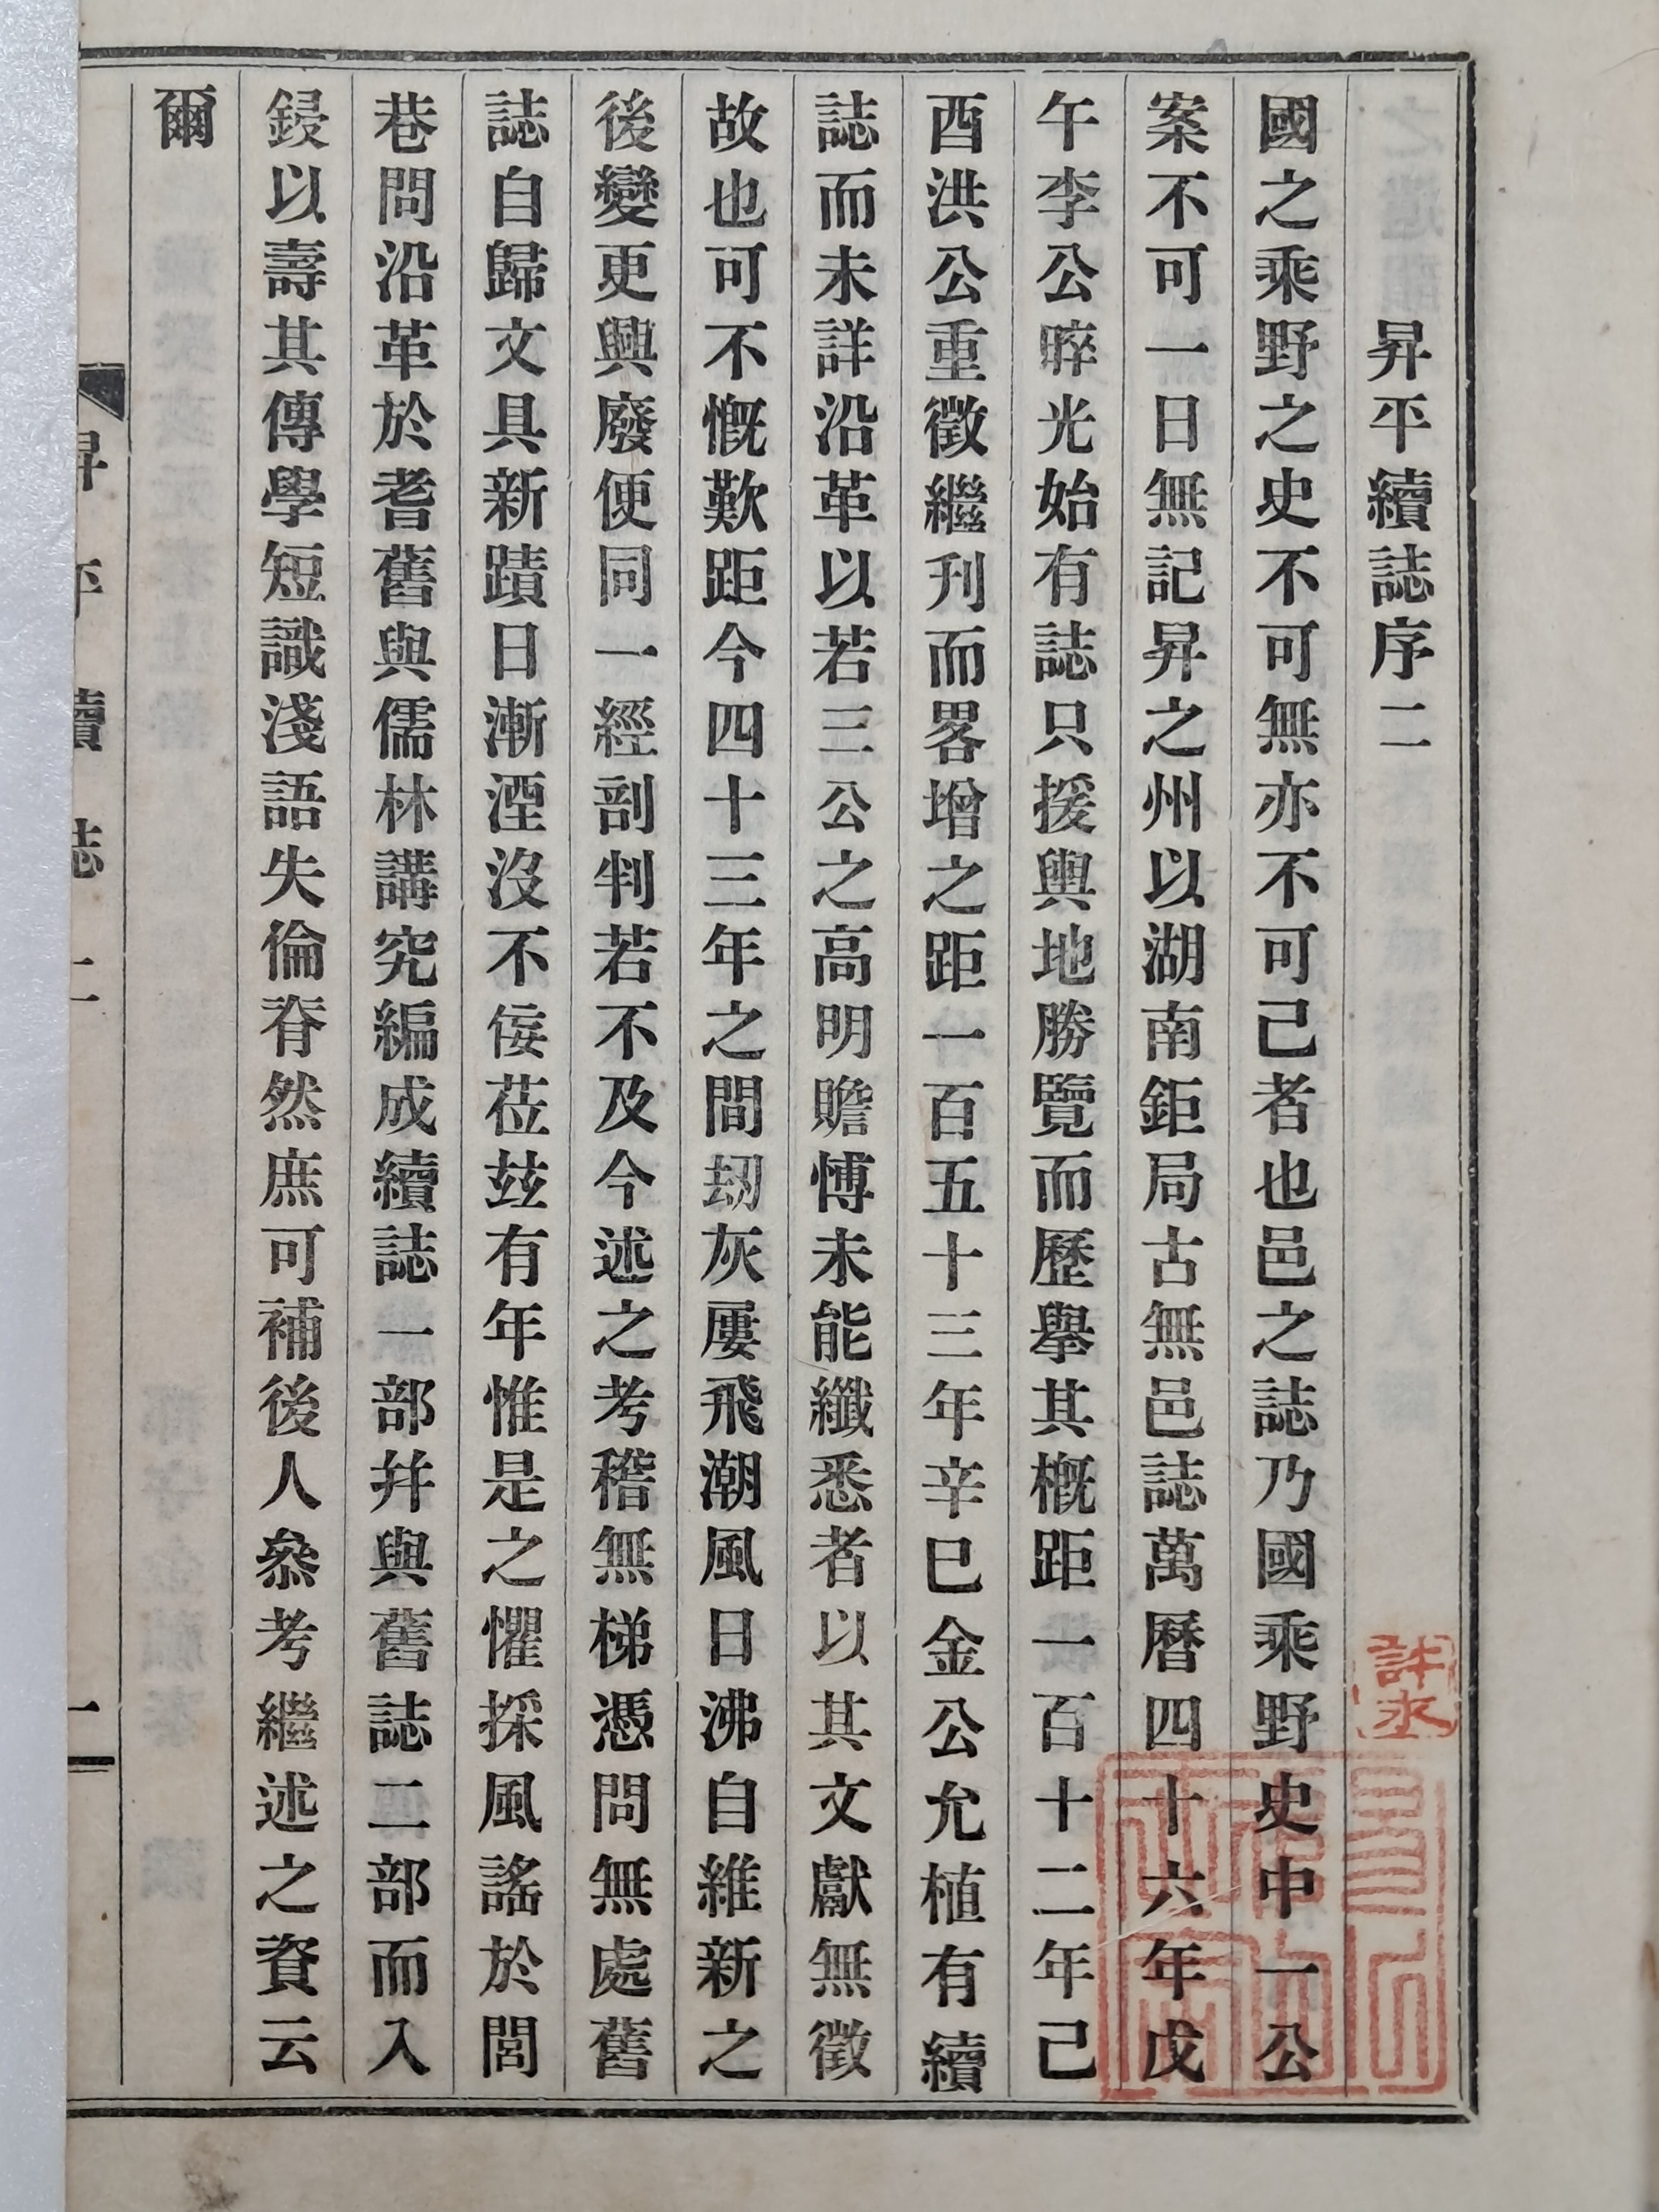 昇平續誌序二
國之乘野之史不可無亦不可已者也邑之誌乃國乘野史中一公
案不可一日無記昇之州以湖南鉅局古無邑誌萬曆四十六年戊
午李公睟光始有誌只援輿地勝覽而歷擧其槪距一百十二年己
酉洪公重徵繼刊而畧增之距一百五十三年辛巳金公允植有續
誌而未詳沿革以若三公之高明贍愽未能纖悉者以其文獻無徵
故也可不慨歎距今四十三年之間刼灰屢飛潮風日沸自維新之
後變更興廢便同一經剖判若不及今述之考稽無梯憑問無處舊
誌自歸文具新蹟日漸湮沒不佞莅玆有年惟是之懼採風謠於閭
巷問沿革於耆舊與儒林講究編成續誌一部幷與舊誌二部而入
鋟以壽其傳學短識淺語失倫脊然庶可補後人叅考繼述之資云
爾
昇平續誌 二
一